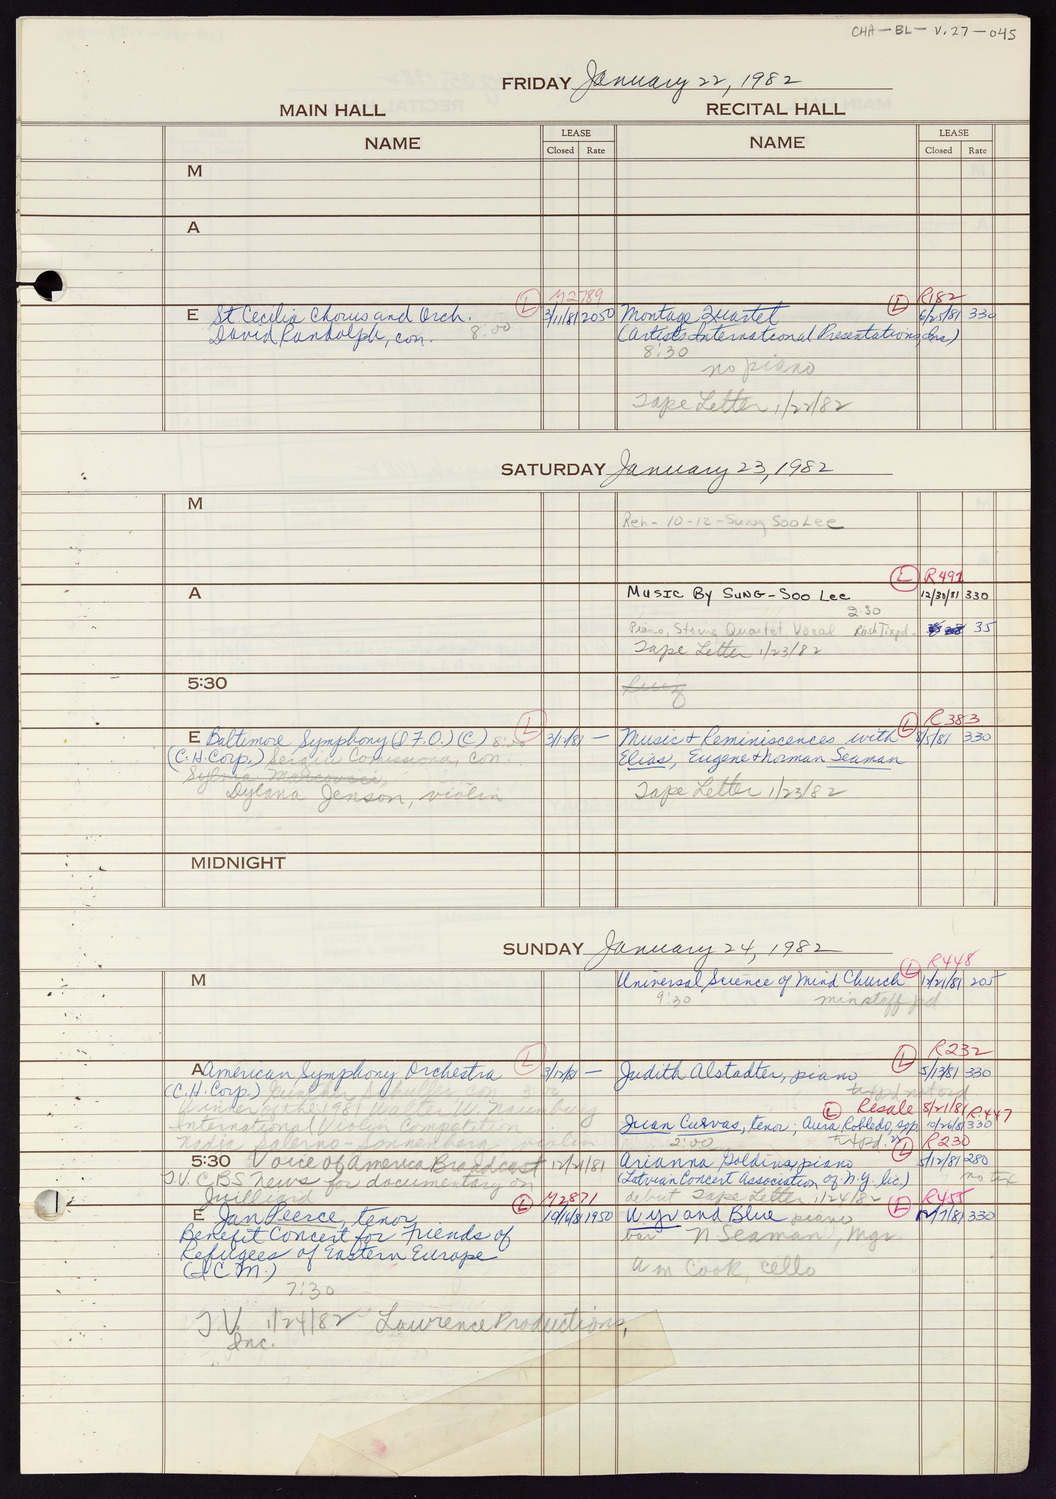 CHA-BL-V.27-045
FRIDAY January 22, 1982
MAIN HALL
RECITAL HALL
NAME
LEASE
Closed Rate
NAME
LEASE
Closed Rate
M
A
L M2789
E St Cecilia Chorus and Orch. 3/11/81 2050
David Randolph, con. 8:00
L R182
Montage Quartet 6/25/81 330
(Artists International Presentations, Inc)
8:30
no piano
Tape Letter 1/22/82
SATURDAY January 23, 1982
M
Reh - 10-12 - Sung Soo Lee
A
L R491
Music By Sung-Soo Lee 12/30/81 330
2:30
Piano, String Quartet, Vocal 35
Tape Letter 1/23/82
5:30
L
E Baltimore Symphony (I.F.O.) (C) 8:00 —
(C.H. Corp.) Sergiu Comissiona, con.
Sylvia Marcovici,
Dylana Jenson, violin
L R383
Music & Reminiscences with 330
Elias, Eugene & Norman Seaman
Tape Letter 1/23/82
MIDNIGHT
SUNDAY January 24, 1982
M
L R448
Universal Science of Mind Church 205
9:30 min staff pd
L
A American Symphony Orchestra 3/12/81 —
(C.H. Corp.) Gunther Schuller, con. 3:00
Winner of the 1981 Walter W. Naumburg
International Violin Competition
Nadja Salerno-Sonnenberg, violin
L R232
Judith Alstadter, piano 5/13/81 330
L Resale 8/21/81 R447
Juan Cuevas, tenor; Aura Robledo, sop. 10/26/81 330
2:00
5:30 Voice of America Broadcast 12/21/81
T.V. CBS News for documentary on
Juilliard
L R230
Arianna Goldina, piano 5/12/81 280
(Latvian Concert Association of N.Y. Inc.) no tix
debut Tape Letter 1/24/82
L M2871
E Jan Peerce, tenor 10/16/81 1950
Benefit Concert for Friends of
Refugees of Eastern Europe
(I.C.M.)
7:30
T.V. 1/24/82 Lawrence Productions,
Inc.
L R455
Wyr and Blue piano 12/7/81 330
bar N Seaman, Mgr.
Wm Cook, cello